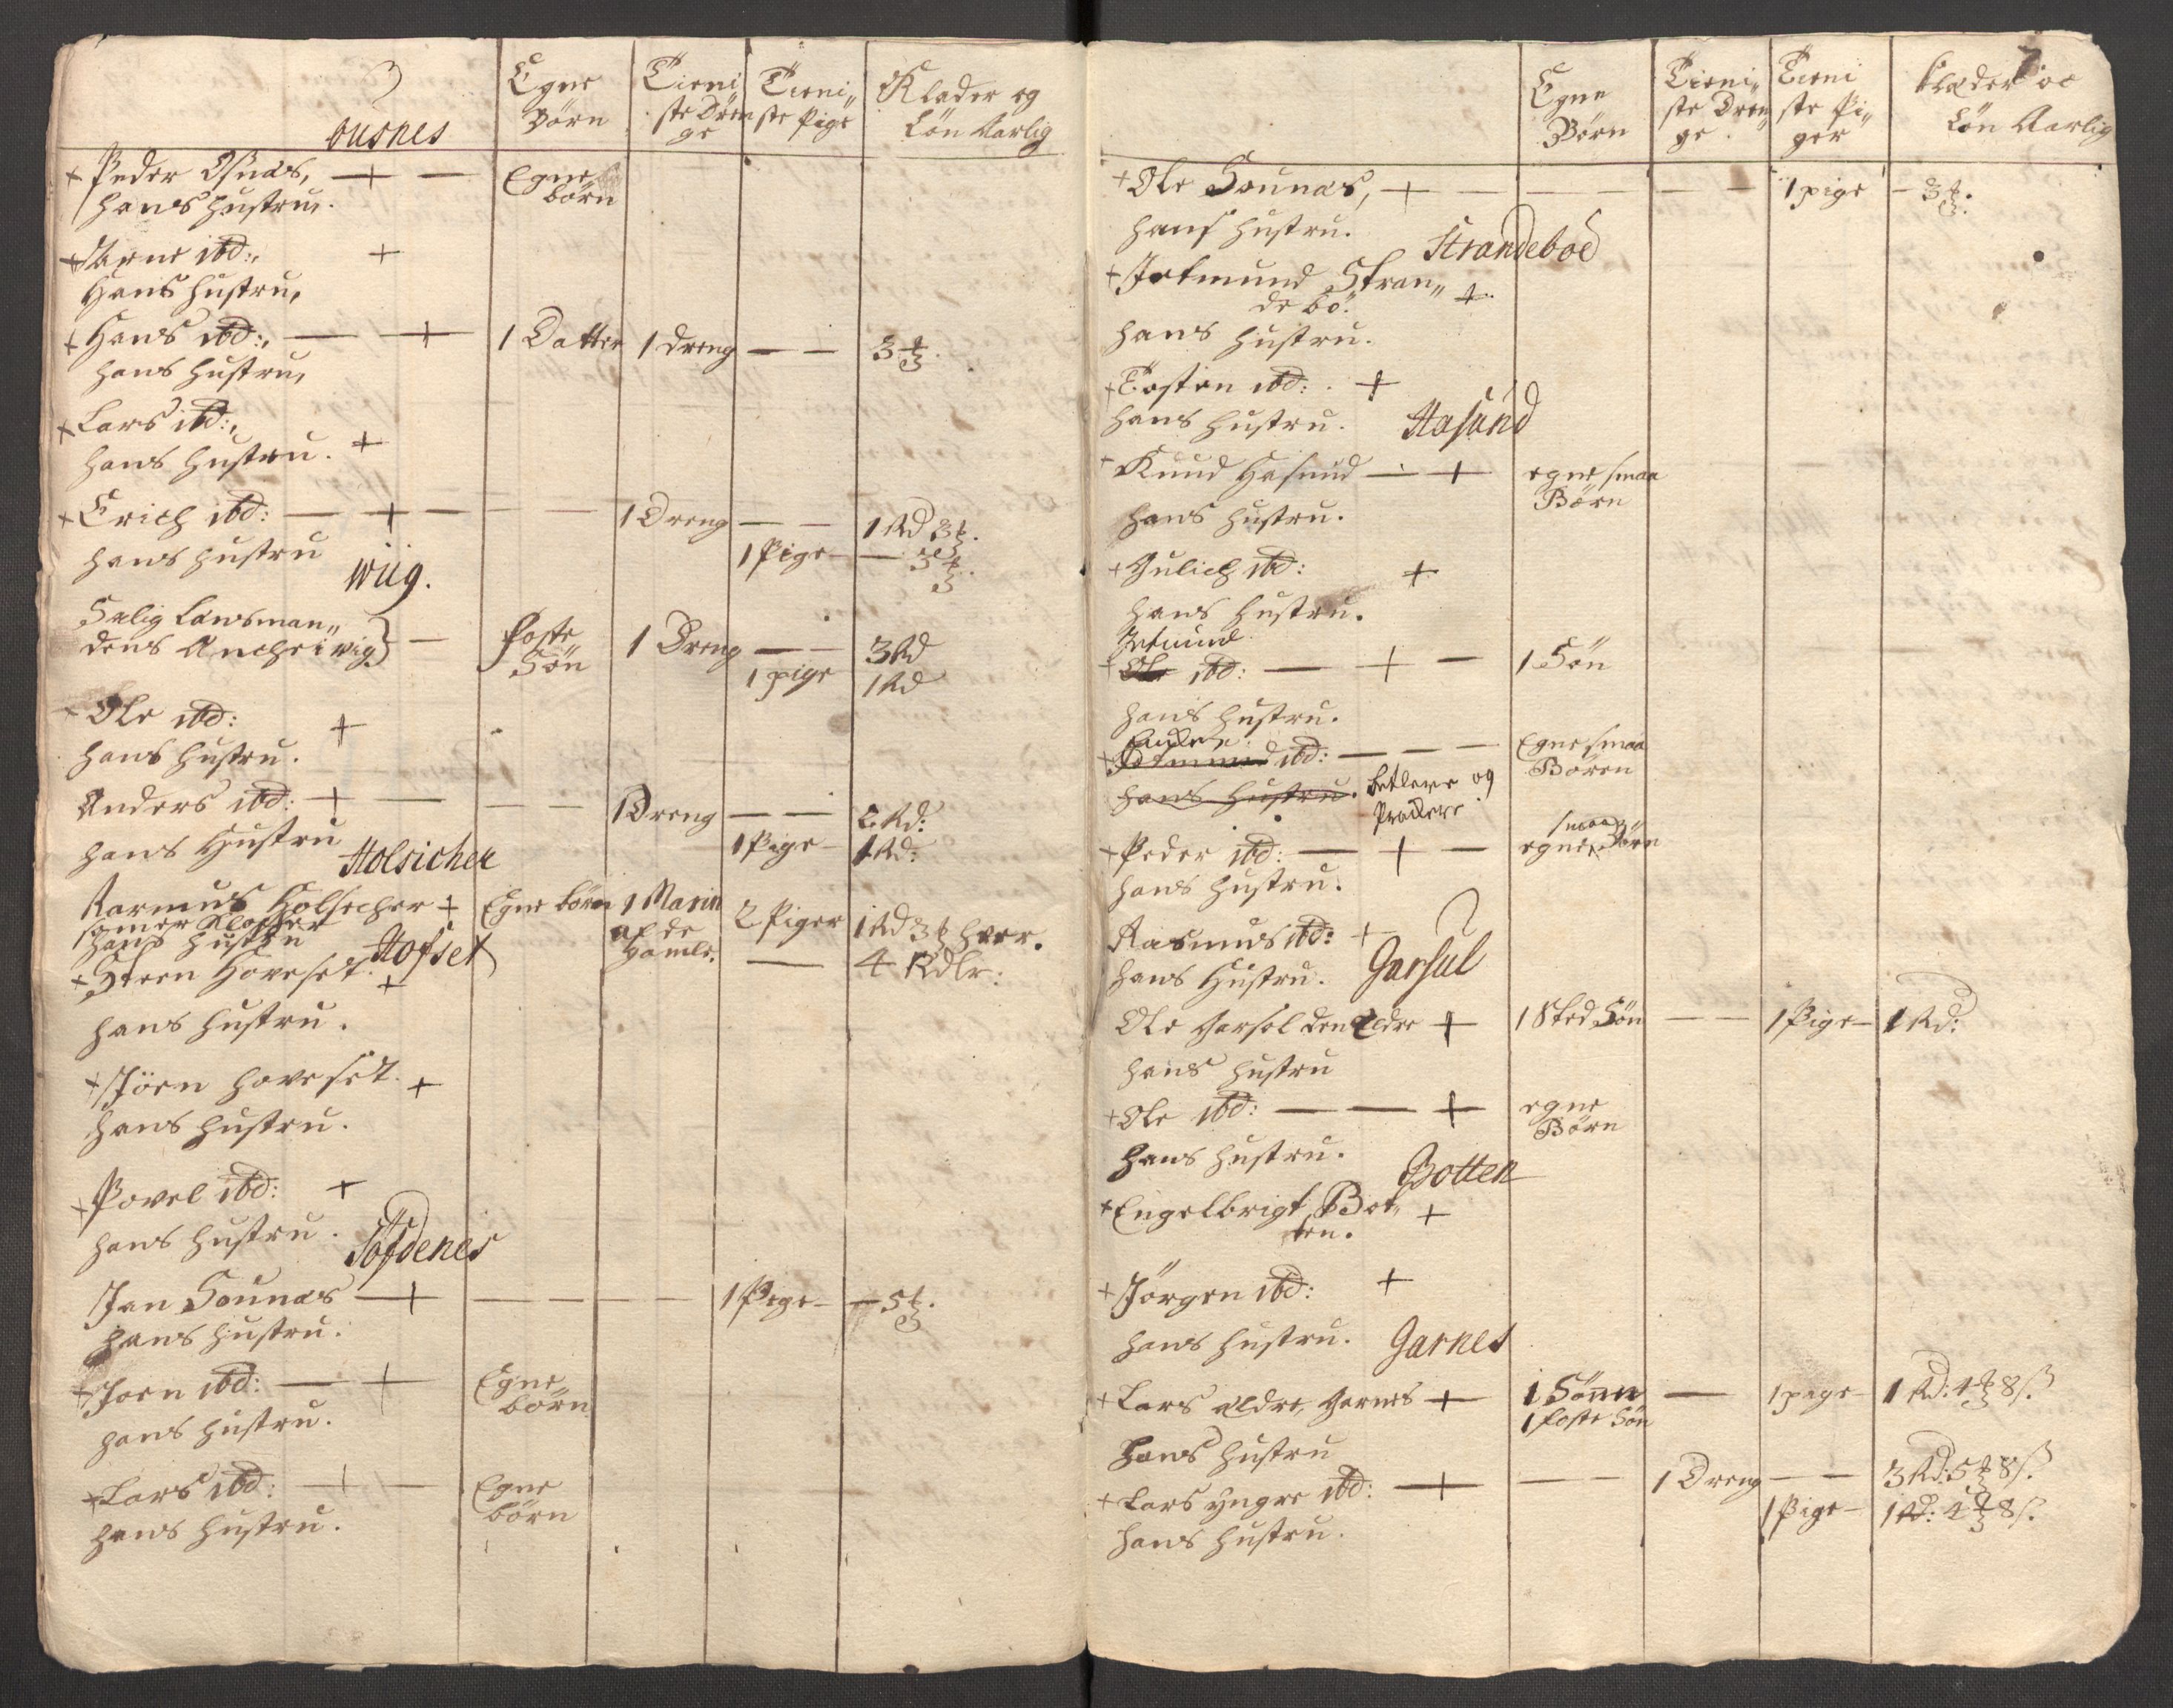 Egne Börn
Tieni„ ste Dren ge
Tieni„ ste Pige
Klæder og Lön Aarlig
ousnes
+ Peder Osnæs, — + — Egne börn
hans hustru.
+ Arne ibd:, +
Hans hustru,
+ Hans ibd:, — + 1 Datter 1 dreng — — 3
hans hustru,
+ Lars ibd:,
hans hustru. +
+ Erich ibd: — + — — — 1 Dreng — — 1 Rd 3
hans hustru 1 Pige — — 3
wiig.
Salig Lansman„
dens Anche i wig} — foste Sön 1 Dreng — — 3 Rd
1 pige 1 Rd
Ole ibd: +
hans hustru.
Anders ibd: + — — — 1 Dreng — — 2 Rd:
hans Hustru 1 Pige — 1 Rd:
Holsicher
Rasmus Holsecher + Egne börn 1 Mand 2 Piger 1 Rd 3 hver.
som er Klocher af de
hans hustru Hamle. — 4 Rdlr:
Hofset
+ Steen Hoveset. +
hans hustru.
+ Jöen hoveset. +
hans hustru.
+ Povel ibd: +
hans hustru.
Söfdenes
Jan Sounæs — + — — — — 1 Pige — — 5
hans hustru.
+ Joen ibd: — + Egne börn
hans hustru.
+ Lars ibd: — + — Egne börn
hans hustru.
7
Egne Börn
Tieni„ ste Dren„ ge.
Tieni ste Pi„ ger
klæder oc Lön Aarlig
+ Ole Sounæs, + — — — — — 1 pige — 3
hans hustru.
Strandeboe
+ Jetmund Stran„
de bö. +
hans hustru.
+ Tosten ibd: . +
hans hustru.
Hasund
+ Knud Hasund — + egne smaa Börn
hans hustru.
+ Gulich ibd: +
hans hustru.
Jetmund
+ Ole ibd: — + — 1 Sön
hans hustru.
+ Jetmund ibd: — — — Egne smaa Börn
hans hustru. betlere og
Prackere
+ Peder ibd: — + — egne smaa Börn
hans hustru.
Rasmus ibd: +
hans Hustru.
Garsul
Ole Garsol den Eldre + 1 Sted Sön — — 1 Pige — 1 Rd:
hans hustru
+ Ole ibd: — — + egne Börn
hans hustru.
Botten
+ Engelbrigt Bot„
ten. +
+ Jörgen ibd: +
hans hustru.
Garnes
+ Lars ældre, Garnes + 1 Sönn — 1 pige — 1 Rd: 4 8 ß
1 foste Sön
hans hustru
+ Lars yngre ibd: — + — — 1 Dreng — — 3 Rd: 5 8 ß
hans hustru. 1 Pige — 1 Rd: 4 8 ß